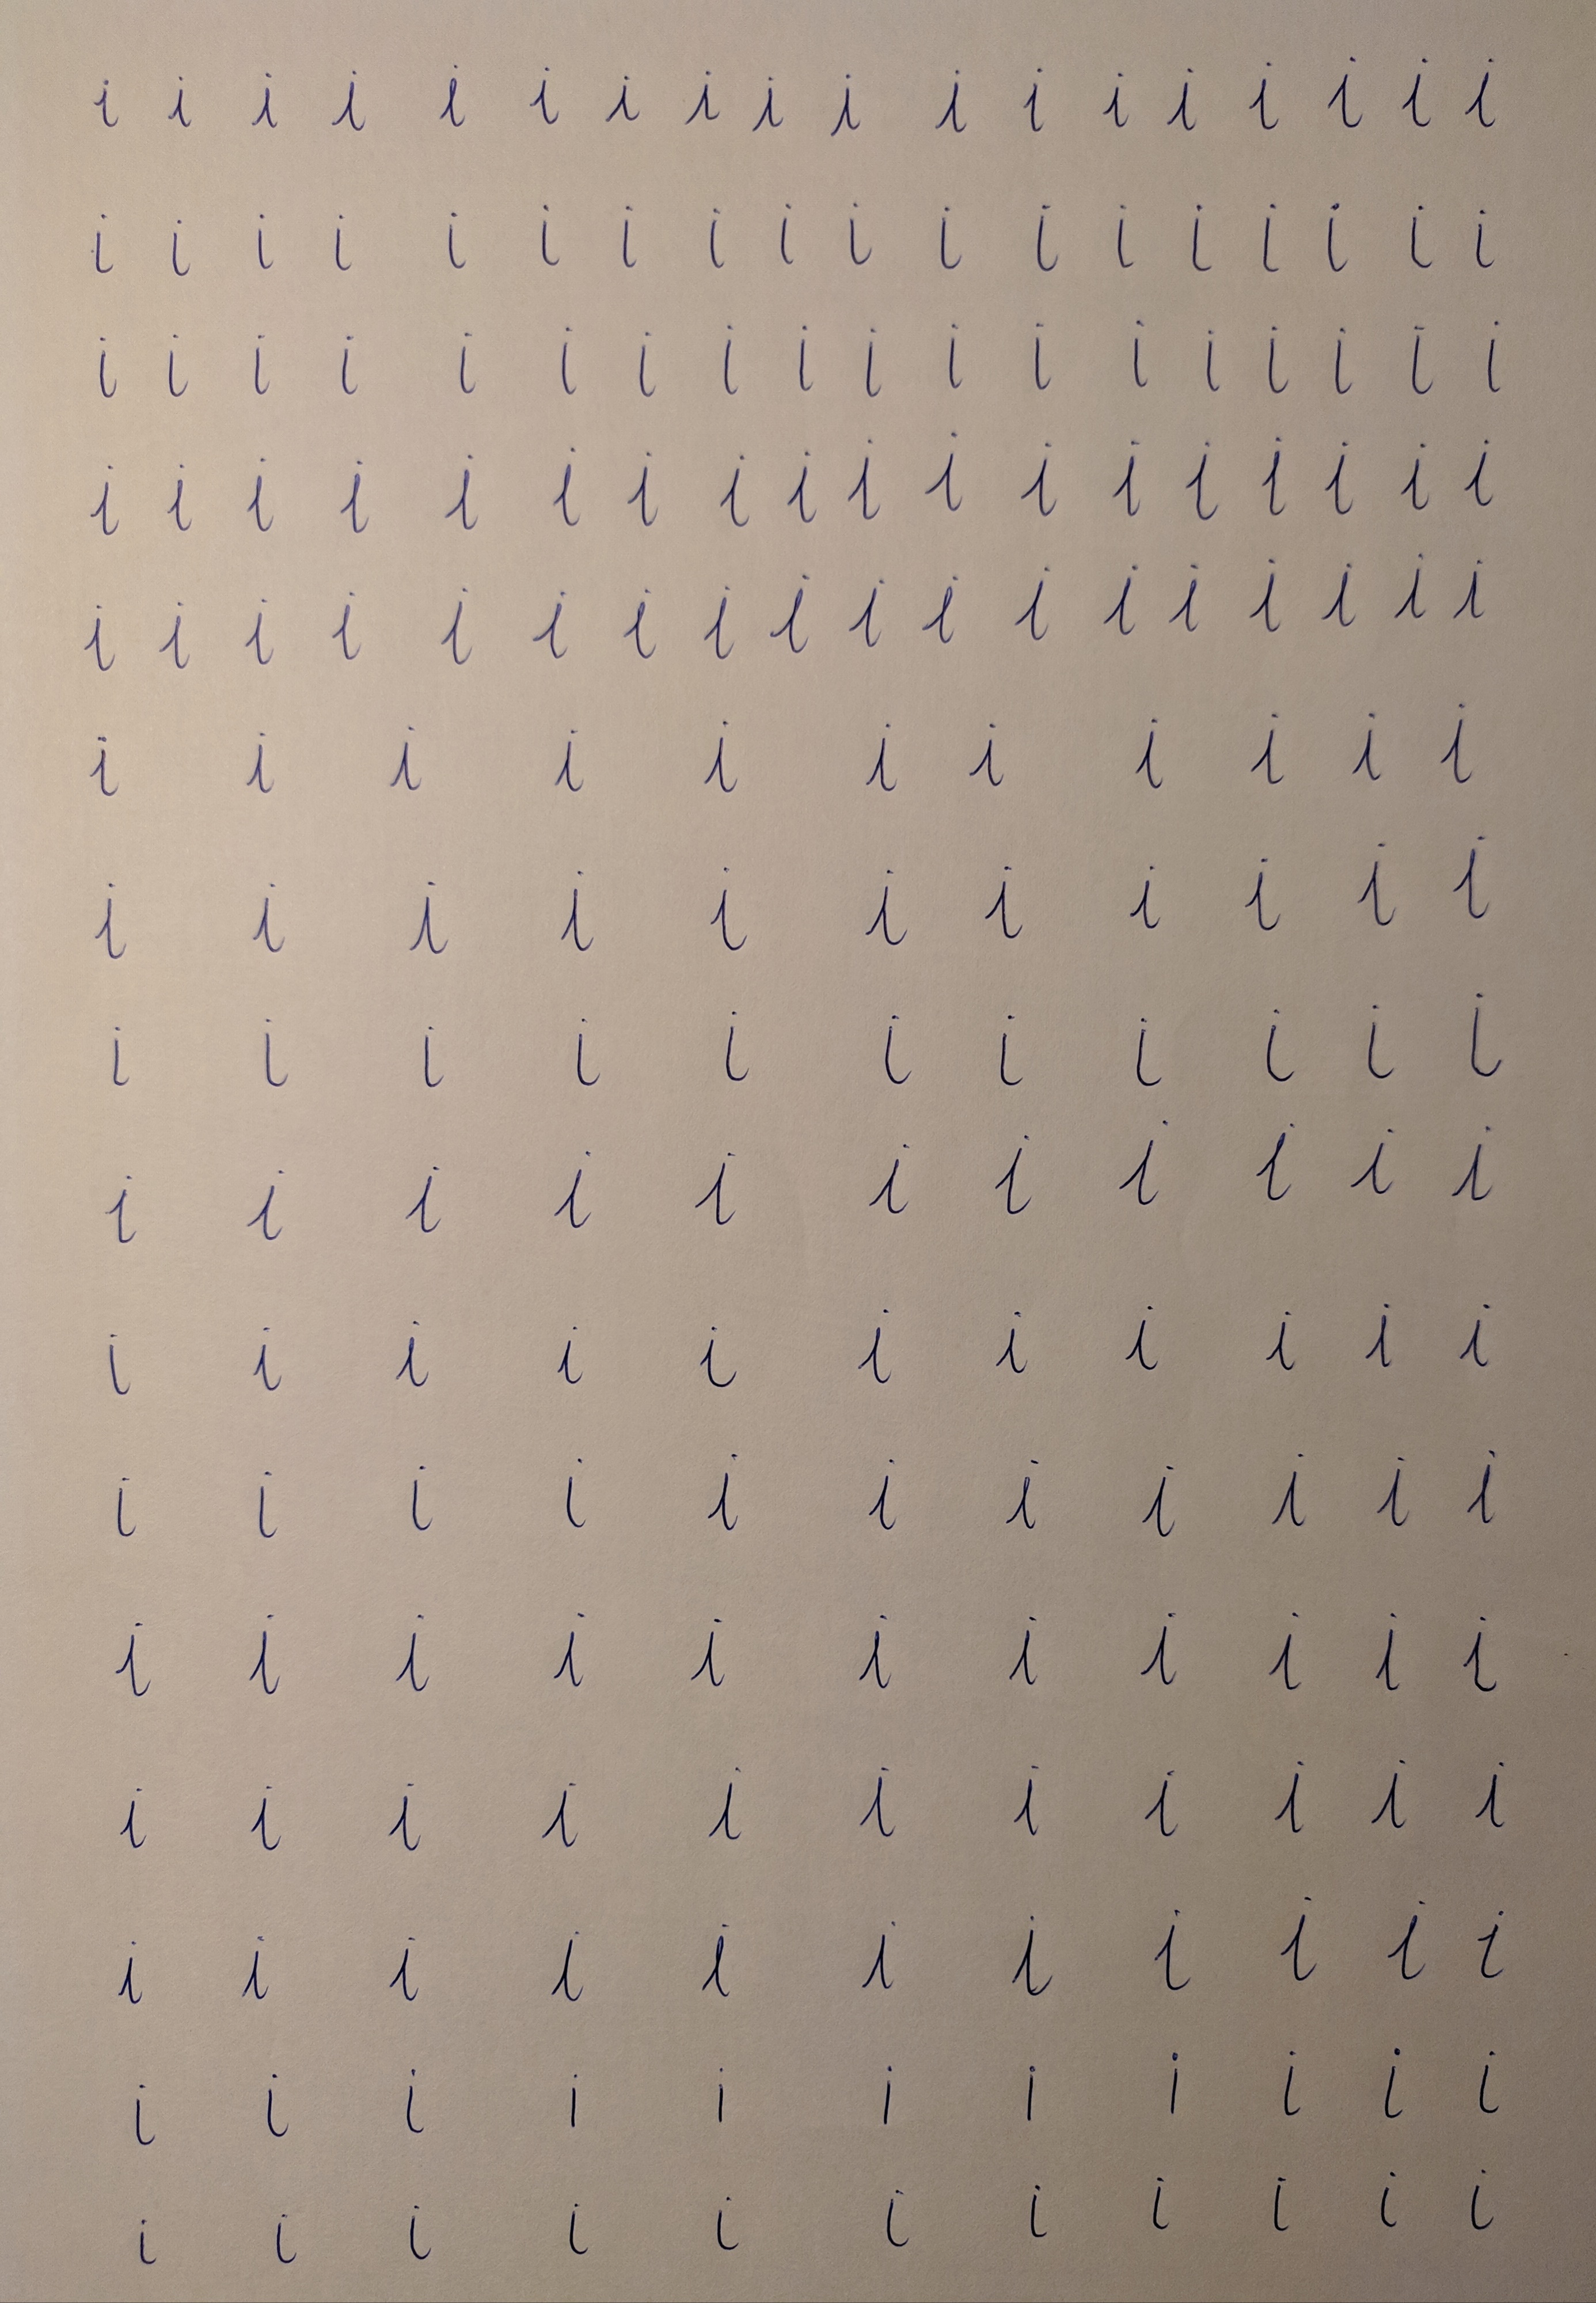 i i i i i i i i i i i i i i i i i i
i i i i i i i i i i i i i i i i i i
i i i i i i i i i i i i i i i i i i
i i i i i i i i i i i i i i i i i i
i i i i i i i i i i i i i i i i i i
i i i i i i i i i i i
i i i i i i i i i i i
i i i i i i i i i i i
i i i i i i i i i i i
i i i i i i i i i i i
i i i i i i i i i i i
i i i i i i i i i i i
i i i i i i i i i i i
i i i i i i i i i i i
i i i i i i i i i i i
i i i i i i i i i i i